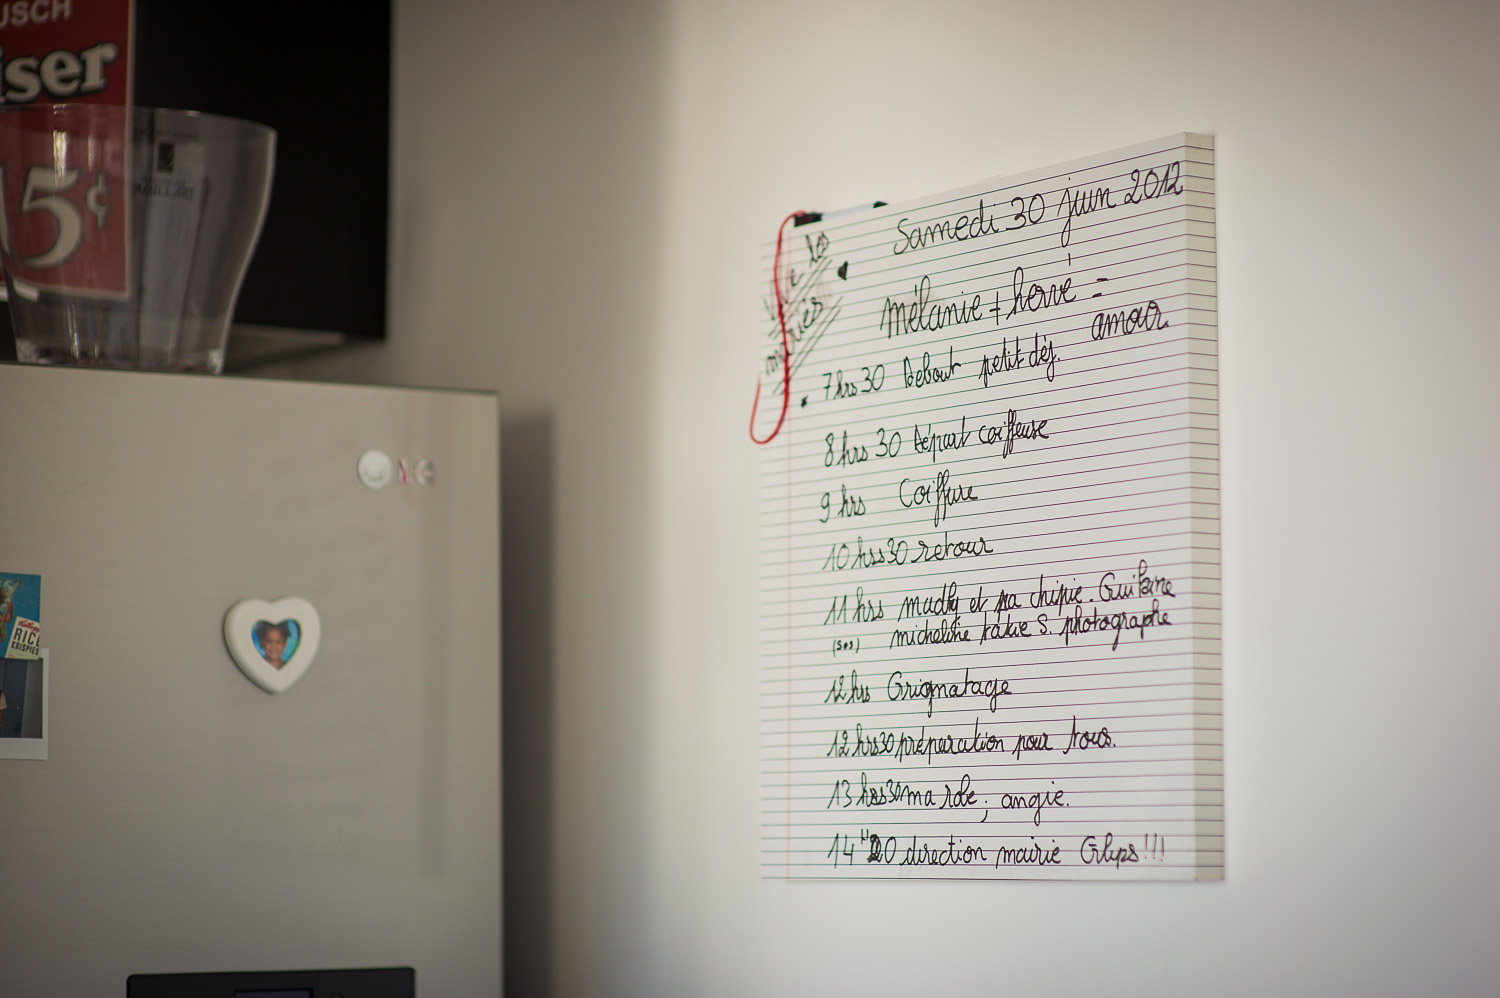 USCH
iser
15¢
LG
Kellogg's
RICE
KRISPIES
Vive les
mariés
Samedi 30 juin 2012
mélanie + hervé =
amour
7hrs30 Debout petit déj.
8hrs30 Départ coiffeuse
9 hrs Coiffure
10 hrs30 retour
11 hrs madly et sa chipie. Guilaine
(sos) micheline S. photographe
12hrs Grignotage
12hrs30 préparation pour tous.
13 hrs30 ma robe, angie.
14 H 20 direction mairie Glups!!!